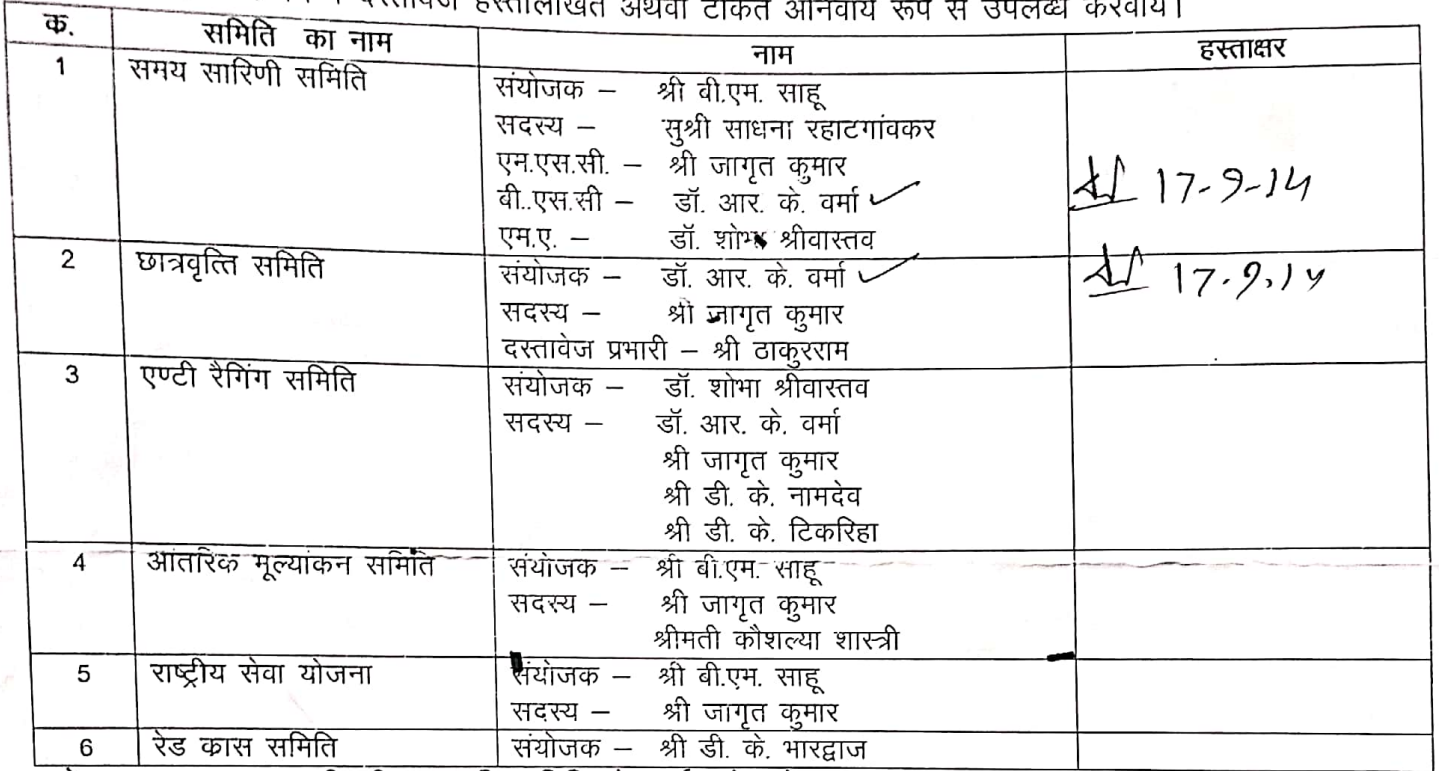 दस्तावेज हस्तलिखित अथवा टंकित अनिवार्य रूप से उपलब्ध करवायें।
क. समिति का नाम नाम हस्ताक्षर
1 समय सारिणी समिति संयोजक – श्री बी.एम. साहू
सदस्य – सुश्री साधना रहाटगांवकर
एम.एस.सी. – श्री जागृत कुमार
बी..एस.सी – डॉ. आर. के. वर्मा ✓ 17-9-14
एम.ए. – डॉ. शोभा श्रीवास्तव
2 छात्रवृत्ति समिति संयोजक – डॉ. आर. के. वर्मा ✓ 17.9.14
सदस्य – श्री जागृत कुमार
दस्तावेज प्रभारी – श्री ठाकुरराम
3 एण्टी रैगिंग समिति संयोजक – डॉ. शोभा श्रीवास्तव
सदस्य – डॉ. आर. के. वर्मा
श्री जागृत कुमार
श्री डी. के. नामदेव
श्री डी. के. टिकरिहा
4 आंतरिक मूल्यांकन समिति संयोजक – श्री बी.एम. साहू
सदस्य – श्री जागृत कुमार
श्रीमती कौशल्या शास्त्री
5 राष्ट्रीय सेवा योजना संयोजक – श्री बी.एम. साहू
सदस्य – श्री जागृत कुमार
6 रेड कास समिति संयोजक – श्री डी. के. भारद्वाज